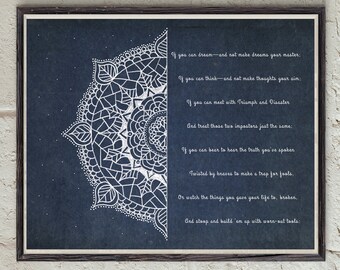 If you can dream—and not make dreams your master;
If you can think—and not make thoughts your aim;
If you can meet with Triumph and Disaster
And treat those two impostors just the same;
If you can bear to hear the truth you've spoken
Twisted by knaves to make a trap for fools,
Or watch the things you gave your life to, broken,
And stoop and build 'em up with worn-out tools.